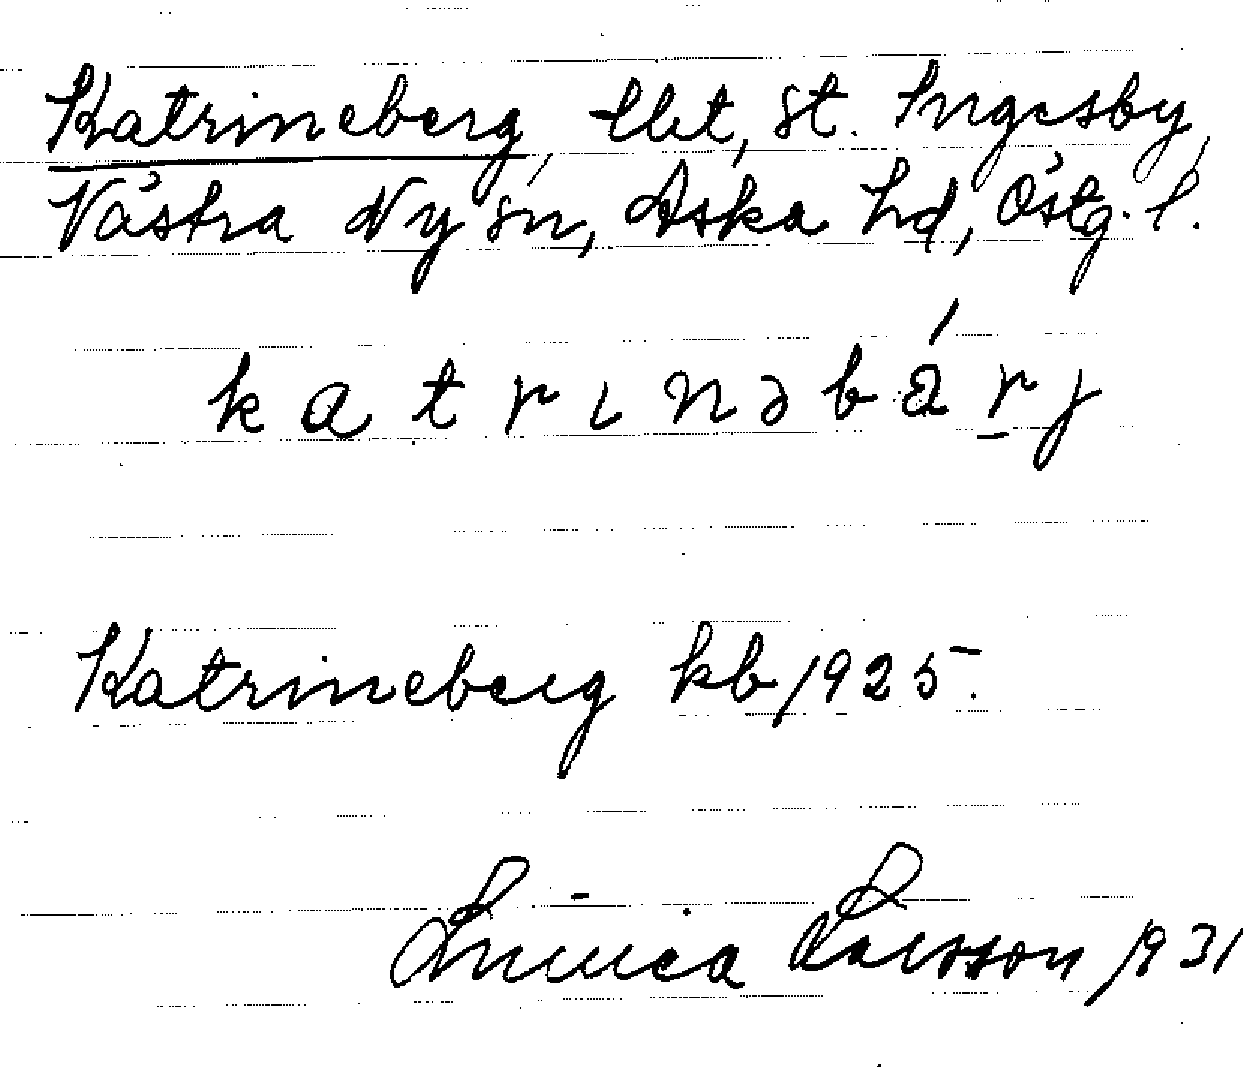 Katrineberg, lht, st. Ingesby,
Västra Ny sn, Aska hd, Östg. l.
katrinəbá̈rj
Katrineberg kb 1925.
Linnea Larsson 1931